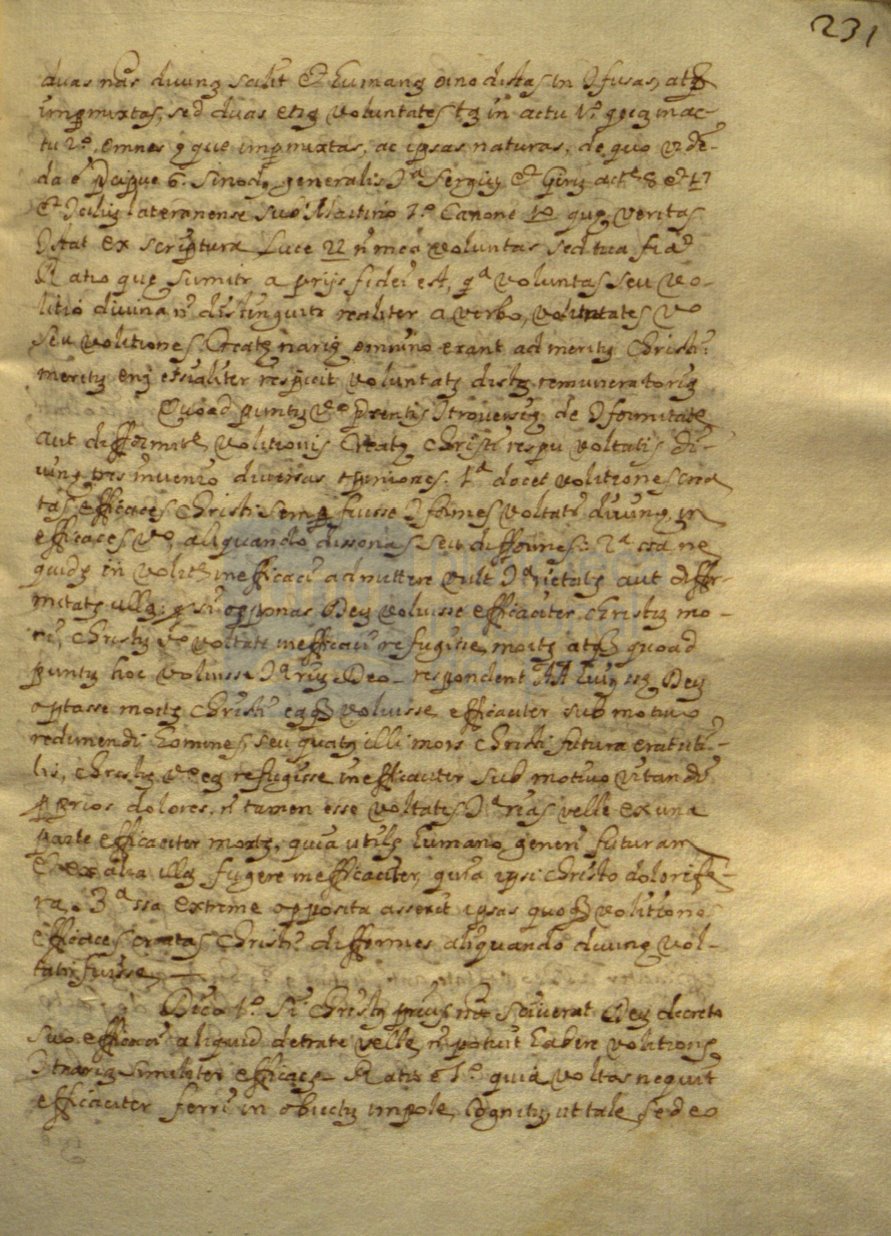 231
duas nãs divinꝫ scilit et humanꝫ oino distas inconfusas, atqꝫ
impmixtas, sed duas etiꝫ voluntates tꝫ in actu 1º qꝫ in ac-
tu 2º. omnes impmixtas, ac ipsas naturas, de quo vidẽ-
da e 6ª sinodꝫ generalis Sergiꝫ et act 8 et 17
et lateranense sub Martino 1º Canone quꝫ veritas
Constat ex scriptura Luce 22 ñ mea voluntas sed tua fiat
Ratio quꝫ sumitr a prijs fidei est, qª voluntas seu vo-
litio divina ñ distinguitr realiter a verbo, voluntates vº
seu volitiones creatꝫ nariꝫ omnino erant ad meritꝫ Christi:
meritꝫ enĩ respicit voluntatꝫ distꝫ remuneratoriꝫ
Quoad punctꝫ vº pñtis Controversiꝫ de Conformitate
aut difformitẽ volitionis Creatꝫ Christi respu voltatis di-
vinꝫ, tres invenio diversas opiniones. 1ª docet volitiones crea
tas efficaces Christi semꝑ fuisse Conformes voltati divinꝫ, in
efficaces vº, aliquando dissonas seu difformes: 2ª ne
quidꝫ in volitꝫ inefficaci admittere vult Contrarietatꝫ aut diffor-
mitatꝫ ullaꝫ; si opponas Deꝫ voluisse efficaciter Christꝫ mo-
ri, Christꝫ vº voltate inefficaci refugisse mortꝫ atqꝫ quoad
punctꝫ hoc voluisse Contrariꝫ Deo. respondent AA huiꝫ Deꝫ
optasse mortꝫ Christi eaqꝫ voluisse efficaciter sub motivo
redimendi homines seu quatꝫ illi mors Christi futura erat uti-
lis, Christꝫ vº eꝫ refugisse inefficaciter sub motivo vitandi
pprios dolores. ñ tamen esse voltates Contrarias velle ex una
parte efficaciter mortꝫ, quia utilꝫ humano generi futuram
et ex alia illꝫ fugere inefficaciter, quia ipsi Christo dolorife-
ra. 3ª extreme opposita asserit ipsas quoqꝫ volitiones
efficaces creatas Christi difformes aliquando divinꝫ vol-
tati fuisse.
Dico 1º. Si Christꝫ prius sciverat Deꝫ decreto
suo efficaci aliquid velle, ñ potuit habere volitionꝫ
Contrariꝫ similiter efficacꝫ. Ratio e 1º. quia voltas nequit
efficaciter ferri in obiectꝫ impole, Cognitꝫ ut tale, sed eo